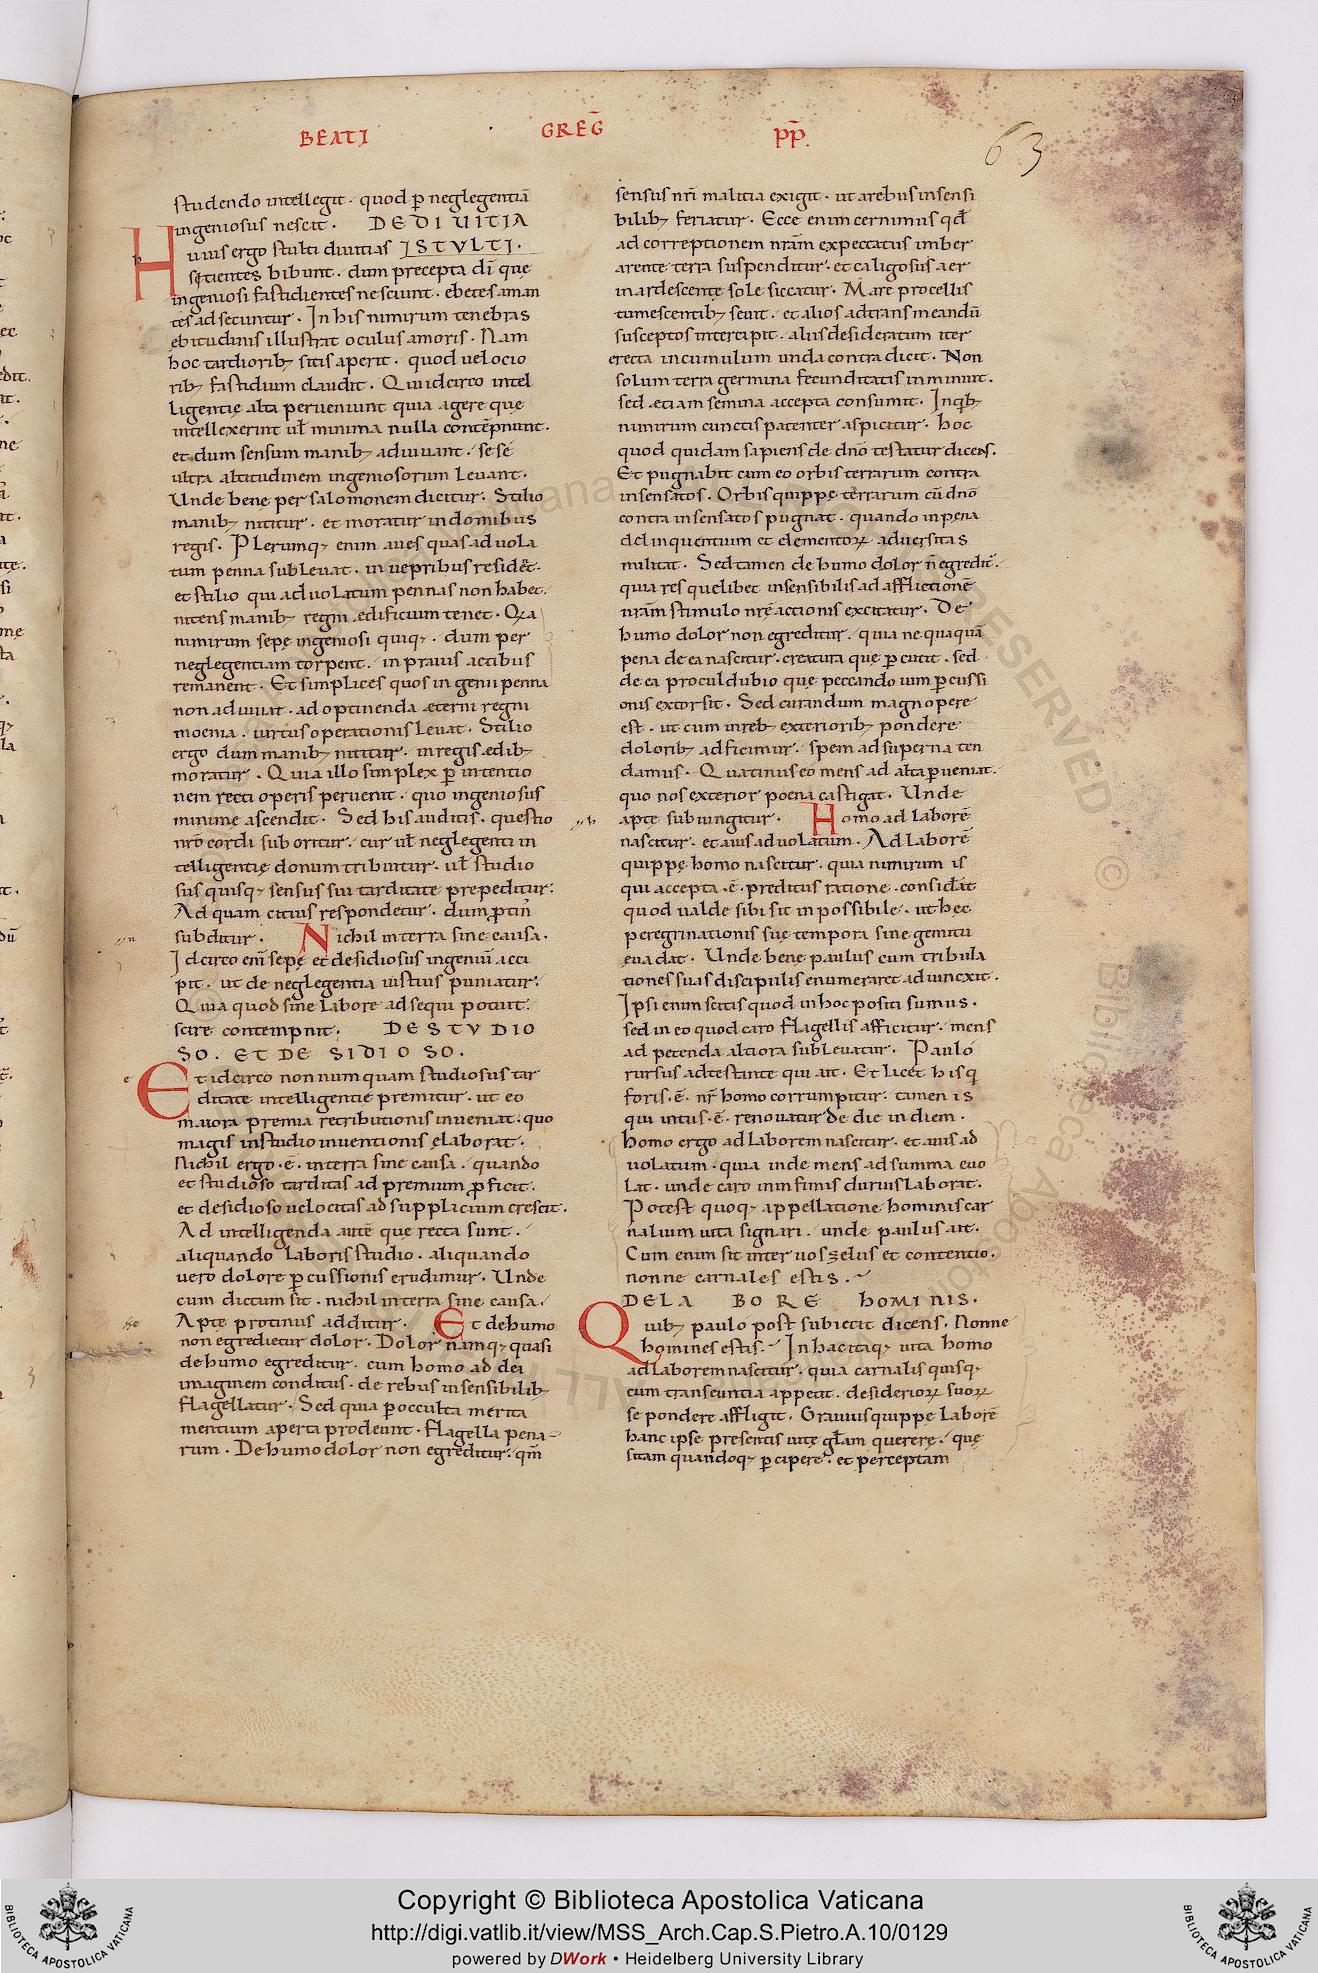 BEATI GREḠ PP̄.
63
studendo intellegit · quod ꝑ neglegentiā
ingeniosus nescit · DE DIUITIA
Huius ergo stulti diuitias ISTVLTI ·
sitientes bibunt · dum precepta dī quę
ingeniosi fastidientes nesciunt · ebetes aman
tes adsecuntur · In his nimirum tenebras
ebitudinis illustrat oculus amoris · Nam
hoc tardiorib; sitis aperit · quod uelocio
rib; fastidium claudit · Qui idcirco intel
ligentię alta perueniunt quia agere que
intellexerint ul̄ minima nulla contēpnunt ·
et dum sensum manib; adiuuant · se sé
ultra altitudinem ingeniosorum leuant ·
Unde bene per salomonem dicitur · Stilio
manib; nititur · et moratur in domibus
regis · Plerumq; enim aues quas ad uola
tum penna subleuat · in uepribus residēt ·
et stilio qui ad uolatum pennas non habet ·
nitens manib; regni ędificium tenet · Q̄a
nimirum sepę ingeniosi quiq; · dum per
neglegentiam torpent · in prauis actibus
remanent · Et simplices quos ingenii penna
non adiuuat · ad optinenda ęterni regni
moenia · uirtus operationis leuat · Stilio
ergo dum manib; nititur · in regis ędib;
moratur · Quia illo simplex ꝑ intentio
nem recti operis peruenit · quo ingeniosus
minime ascendit · Sed his auditis · questio
nrō cordi suboritur · cur ul̄ neglegenti in
telligentię donum tribuitur · ul̄ studio
sus quisq; sensus sui tarditate prepeditur ·
Ad quam citius respondetur · dum ꝓtin̄
subditur · Nichil in terra sine causa ·
Idcirco enī sepę et desidiosus ingeniū acci
pit · ut de neglegentia iustius puniatur ·
Quia quod sine labore adsequi potuit ·
scire contempnit · DE STVDIO
SO · ET DE SIDIOSO ·
Et idcirco non numquam studiosus tar
ditate intelligentię premitur · ut eo
maiora premia retributionis inueniat · quo
magis in studio inuentionis elaborat ·
Nichil ergo · ē · in terra sine causa · quando
et studioso tarditas ad premium ꝓficit ·
et desidioso uelocitas ad supplicium crescit ·
Ad intelligenda autē que recta sunt ·
aliquando laboris studio · aliquando
uero dolore ꝑcussionis erudimur · Unde
cum dictum sit · nichil in terra sine causa ·
Apte protinus additur · Et de humo
non egredietur dolor · Dolor namq; quasi
de humo egreditur · cum homo ad dei
imaginem conditus · de rebus insensibilib;
flagellatur · Sed quia ꝑ occulta merita
mentium aperta prodeunt · flagella pena
rum · De humo dolor non egreditur · qm̄
sensus nrī malitia exigit · ut a rebus insensi
bilib; feriatur · Ecce enim cernimus qđ
ad correptionem nrām expectatus imber
arente terra suspenditur · et caligosus aer
inardescente sole siccatur · Mare procellis
tumescentib; seuit · et alios ad transmeandū
susceptos intercipit · aliis desideratum iter
erecta in cumulum unda contradicit · Non
solum terra germina fecunditatis inminuit ·
sed etiam semina accepta consumit · In quib;
nimirum cunctis patenter aspicitur · hoc
quod quidam sapiens de dnō testatur dicens ·
Et pugnabit cum eo orbis terrarum contra
insensatos · Orbis quippe terrarum cū dnō
contra insensatos pugnat · quando in pena
delinquentium et elementoꝝ aduersitas
militat · Sed tamen de humo dolor n̄ egredit̄ ·
quia res quelibet insensibilis ad afflictionē
nrām stimulo nrē actionis excitatur · De
humo dolor non egreditur · quia nequaquā
pena de ea nascitur · creatura quę ꝑcutit · sed
de ea procul dubio quę peccando uim ꝑcussi
onis extorsit · Sed curandum magnopere
est · ut cum in reb; exteriorib; pondere
dolorib; adficimur · spem ad superna ten
damus · Quatinus eo mens ad alta ꝑueniat ·
quo nos exterior poena castigat · Unde
apte subiungitur · Homo ad laborē
nascitur · et auis ad uolatum · Ad laborē
quippe homo nascitur · quia nimirum is
qui accepta · ē · preditus ratione · considerat
quod ualde sibi sit inpossibile · ut hęc
peregrinationis suę tempora sine gemitu
euadat · Unde bene paulus cum tribula
tiones suas discipulis enumeraret adiuncxit ·
Ipsi enim scitis quod in hoc positi sumus ·
sed in eo quod caro flagellis afficitur · mens
ad petenda altiora subleuatur · Paulo
rursus adtestante qui ait · Et licet his q̄
foris · ē · nr̄ homo corrumpitur · tamen is
qui intus · ē · renouatur de die in diem ·
homo ergo ad laborem nascitur · et auis ad
uolatum · quia inde mens ad summa euo
lat · unde caro in infimis durius laborat ·
Potest quoq; appellatione hominis car
nalium uita signari · unde paulus ait ·
Cum enim sit inter uos zelus et contentio ·
nonne carnales estis ·
DE LABORE HOMINIS ·
Quib; paulo post subiecit dicens · Nonne
homines estis · In hac itaq; uita homo
ad laborem nascitur · quia carnalis quisq;
cum transeuntia appetit · desiderioꝝ suoꝝ
se pondere affligit · Grauius quippe laborē
hanc ipse presentis uitę gl̄am querere · que
sitam quandoq; ꝑcipere · et perceptam
Copyright © Biblioteca Apostolica Vaticana
http://digi.vatlib.it/view/MSS_Arch.Cap.S.Pietro.A.10/0129
powered by DWork • Heidelberg University Library
BIBLIOTECA APOSTOLICA VATICANA
BIBLIOTECA APOSTOLICA VATICANA